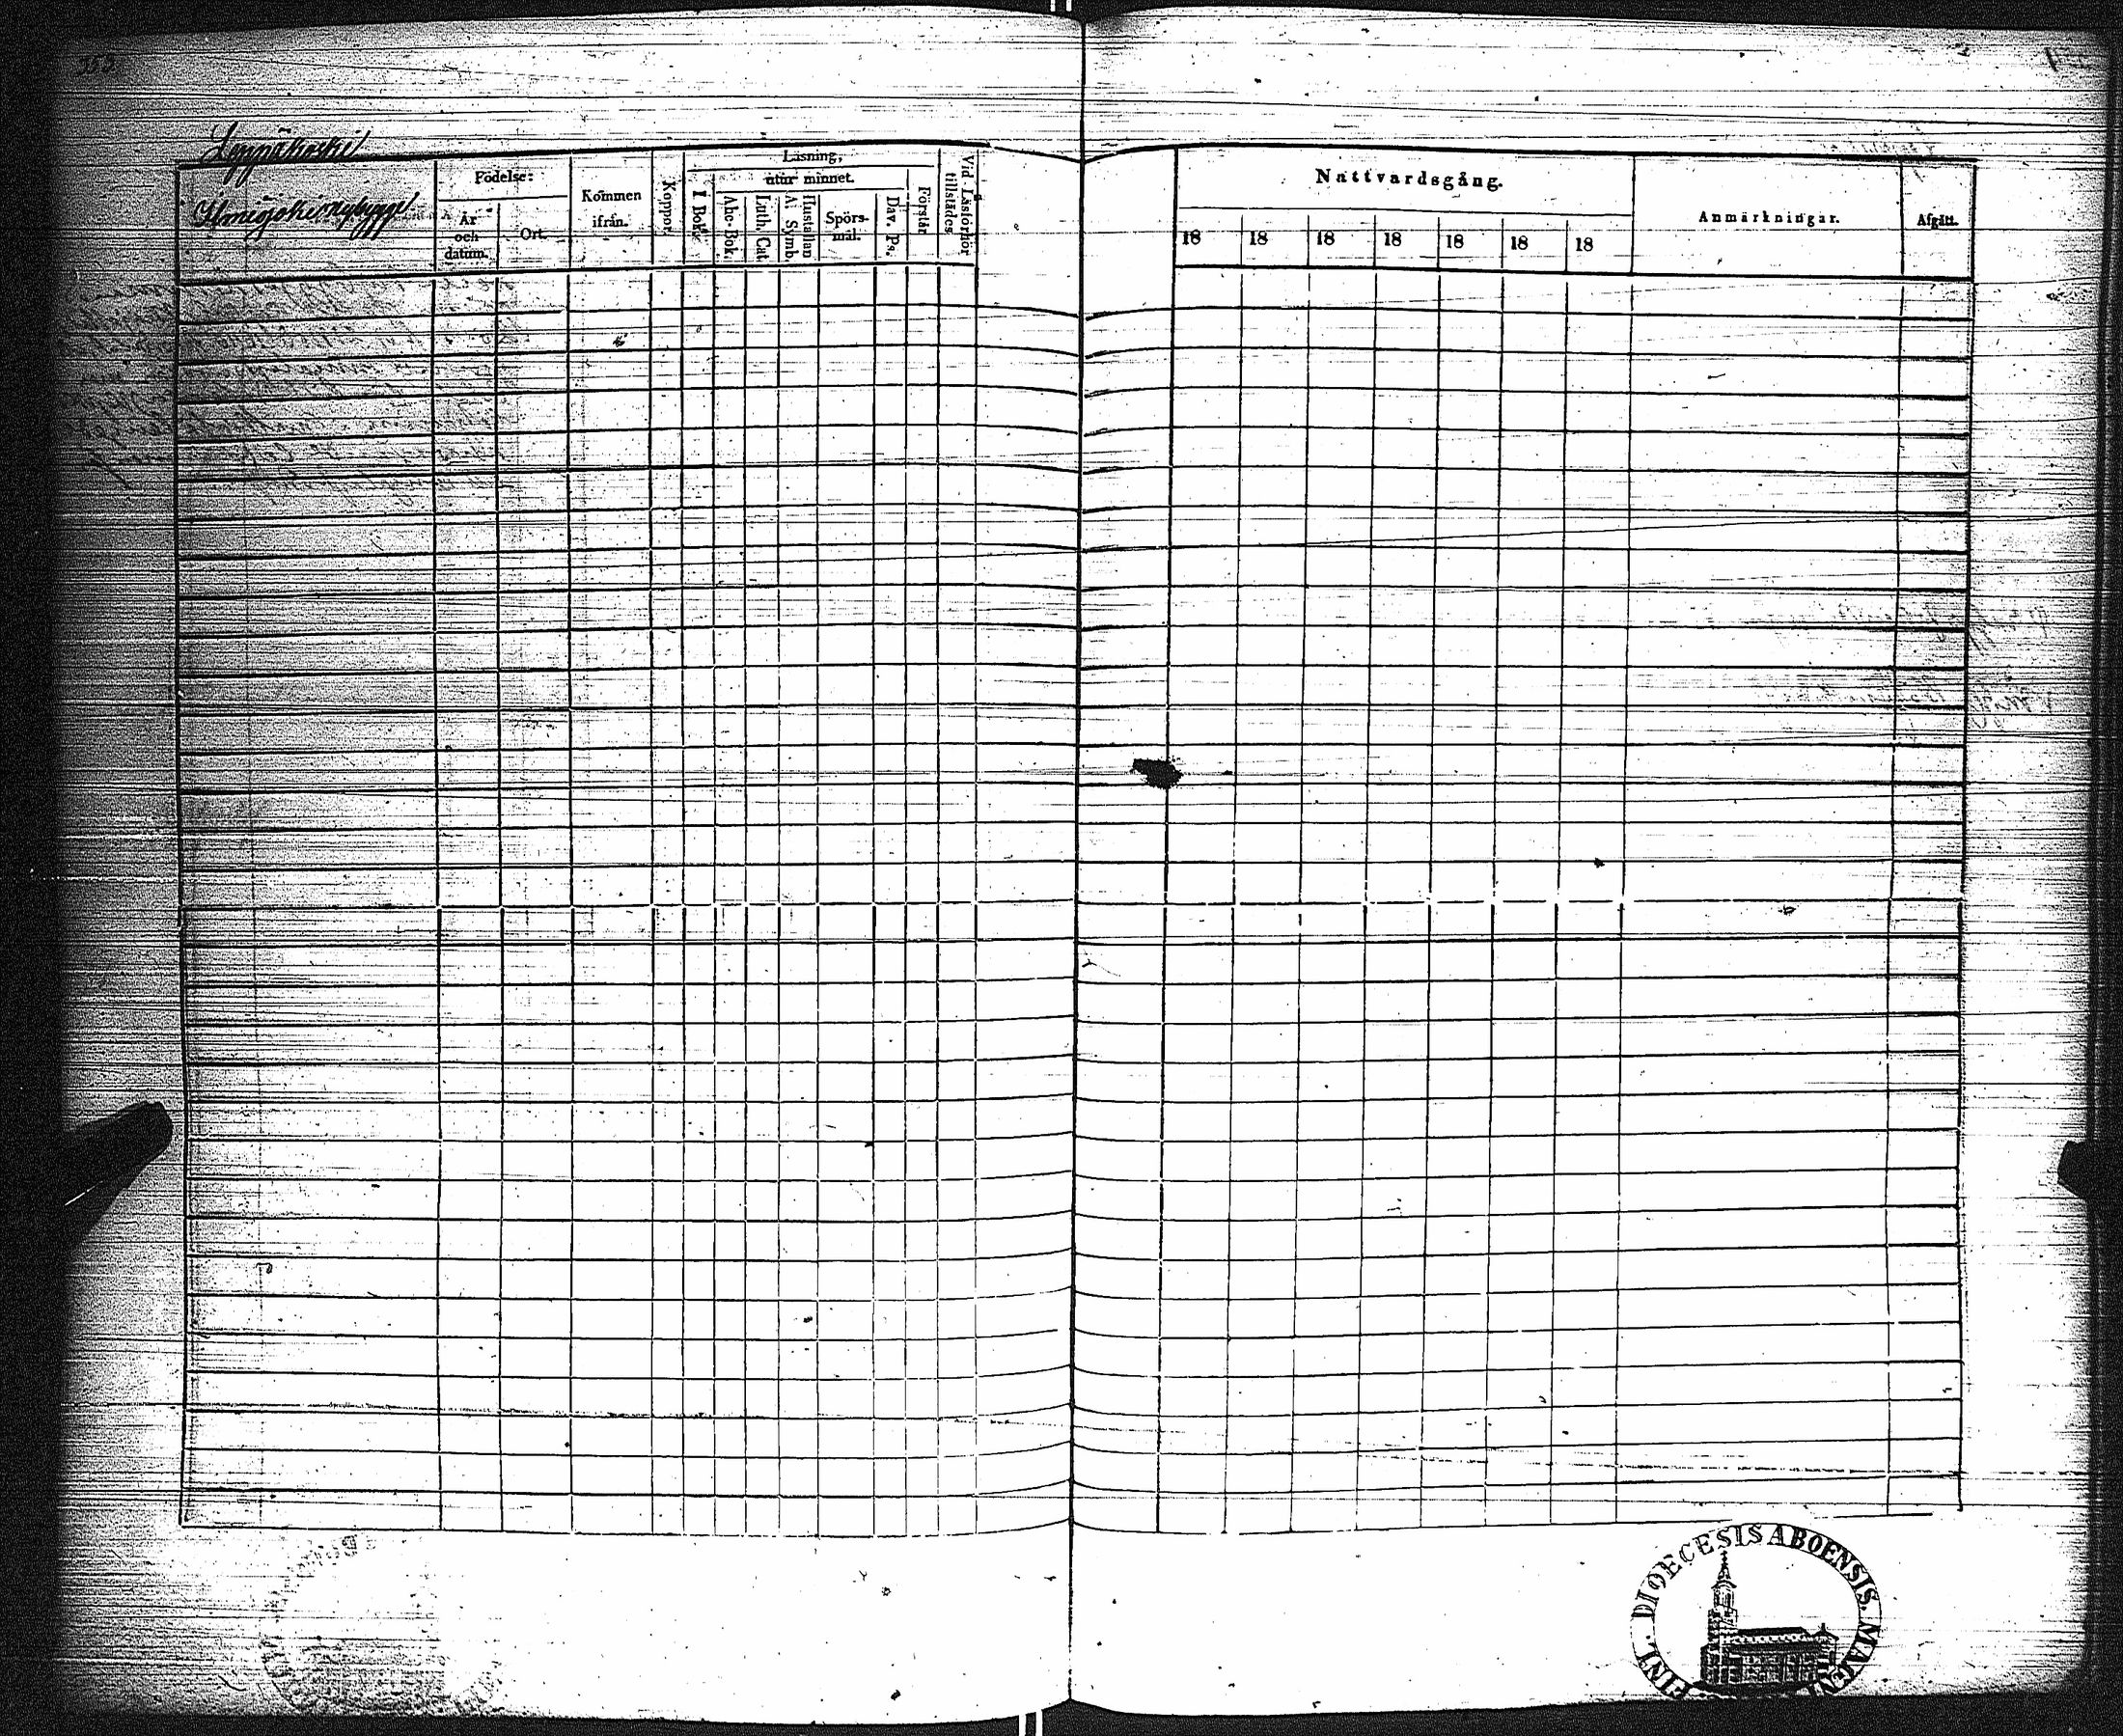 353
Leppäkoski
nybygge
Födelse:
År och datum.
Ort.
Kommen ifrån.
Koppor.
Läsning,
I Bok.
utur minnet.
Abc-Bok.
Luth. Cat.
Hustaflan A. Symb.
Spörs-mål.
Dav. Ps.
Förstår
Vid Läsförhör tillstädes
Nattvardsgång.
18 18 18 18 18 18 18
Anmärkningar.
Afgått.
DIOECESIS ABOENSIS. MAGNI
FINL.